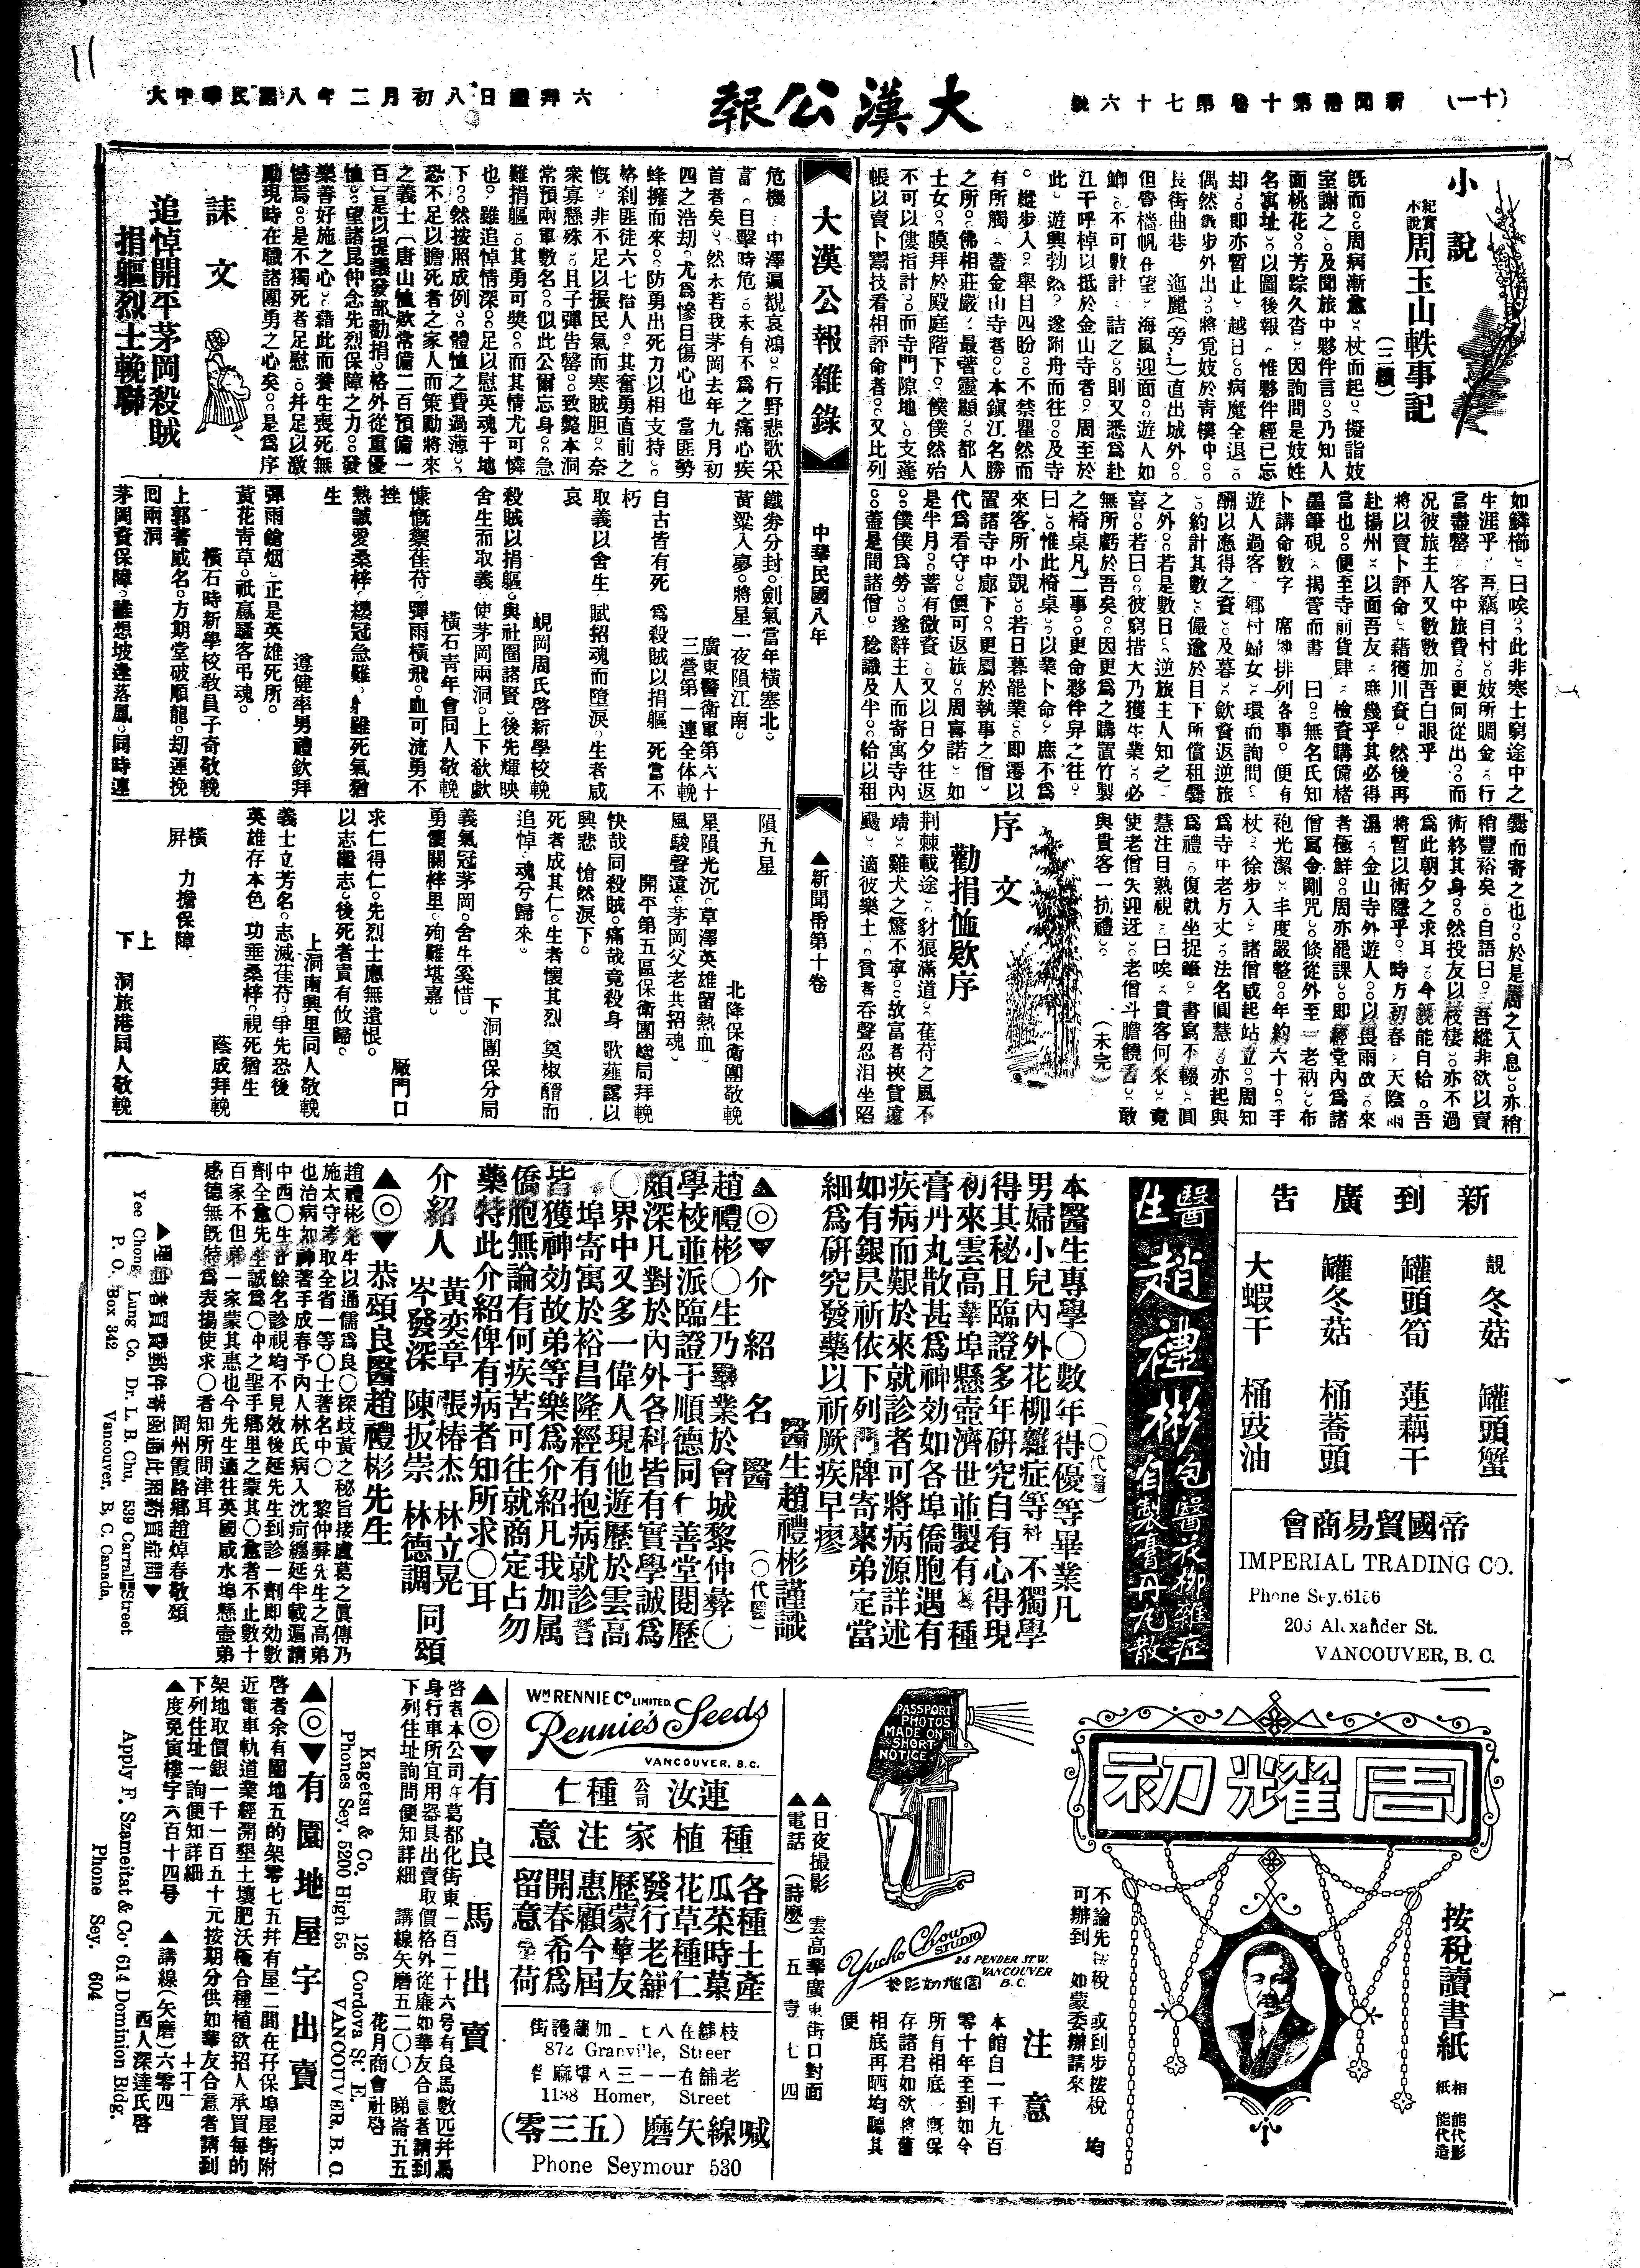 11
(十一)
新聞帋第十卷第七十六號
大漢公報
大中華民國八年二月初八日禮拜六
小說
紀實小說
周玉山軼事記
(三續)
既而周病漸愈杖而起擬詣妓
室謝之及聞旅中夥伴言乃知人
面桃花芳踪久杳因詢問是妓姓
名寓址以圖後報惟夥伴經已忘
却即亦暫止越日病魔全退
偶然散步外出將覓妓於青樓中
長街曲巷迤麗(旁辶)直出城外
但魯檣帆在望海風迎面遊人如
鯽不可數計詰之則又悉爲赴
江干呼棹以抵於金山寺者周至於
此遊興勃然遂附舟而往及寺
縱步入舉目四盼不禁瞿然而
有所觸蓋金山寺者本鎭江名勝
之所佛相莊嚴最著靈顯都人
士女膜拜於殿庭階下僕僕然殆
不可以僂指計而寺門隙地支蓬
帳以賣卜鬻技看相評命者又比列
如鱗櫛曰唉此非寒士窮途中之
生涯乎再竊自忖妓所賙金行
當盡罄客中旅費更何從出而
況彼旅主人又數數加吾白眼乎
將以賣卜評命藉獲川資然後再
赴揚州以面吾友庶幾乎其必得
當也便至寺前貨肆檢資購備楮
墨筆硯揭管而書曰無名氏知
卜講命數字席地排列各事便有
遊人過客鄉村婦女環而詢問
酬以應得之資及暮斂資返逆旅
約計其數儼逾於目下所償租爨
之外若是數日逆旅主人知之
喜若曰彼窮措大乃獲生業必
無所虧於吾矣因更爲之購置竹製
之椅桌凡二事更命夥伴舁之往
曰惟此椅桌以業卜命庶不爲
來客所小覬若日暮罷業即遷以
置諸寺中廊下更屬於執事之僧
代爲看守便可返旅周喜諾如
是半月蓄有微資又以日夕往返
僕僕爲勞遂辭主人而寄寓寺內
蓋是間諸僧稔識及半給以租
爨而寄之也於是周之入息亦稍
稍豐裕矣自語曰吾縱非欲以賣
術終其身然投友以棲亦不過
爲此朝夕之求耳今既能自給吾
將暫以術隱乎時方初春天陰雨
濕金山寺外遊人以畏雨故來
者極鮮周亦罷課即經堂內爲諸
僧寫金剛咒倏從外至一老衲布
袍光潔丰度嚴整年約六十手
杖徐步入諸僧咸起站立周知
爲寺中老方丈法名圓慧亦起與
爲禮復就坐捉筆書寫不輟圓
慧注目熟視曰唉貴客何來竟
使老僧失迎迓老僧斗膽饒舌敢
與貴客一抗禮
(未完)
序文
勸捐恤欵序
荆棘載途豺狼滿道萑苻之風不
靖雞犬之驚不寧故富者挾貲遠
颺適彼樂土貧者吞聲忍泪坐陷
大漢公報雜錄
中華民國八年
▲新聞帋第十卷
危機中澤遍覩哀鴻行野悲歌采
當目擊時危未有不爲之痛心疾
首者矣然未若我茅岡去年九月初
四之浩劫尤爲慘目傷心也當匪勢
蜂擁而來防勇出死力以相支持
格刹匪徒六七拾人其奮勇直前之
慨非不足以振民氣而寒賊胆奈
衆寡懸殊且子彈告罄致斃本洞
常預兩軍數名似此公爾忘身急
難捐軀其勇可獎而其情尤可憐
也雖追悼情深足以慰英魂于地
下然按照成例體恤之費過薄
恐不足以贍死者之家人而策勵將來
之義士(唐山恤欵常備二百預備一
百)是以提議發部勸捐格外從重優
恤望諸昆仲念先烈保障之力發
樂善好施之心藉此而養生喪死無
憾焉是不獨死者足慰幷足以激
勵現時在職諸團勇之心矣是爲序
誄文
追悼開平茅岡殺賊
捐軀烈士輓聯
鐵券分封劍氣當年橫塞北
黃粱入夢將星一夜隕江南
廣東警衛軍第六十
三營第一連全体輓
自古皆有死爲殺賊以捐軀死當不
朽
取義以舍生賦招魂而墮淚生者咸
哀
蜆岡周氏啓新學校輓
殺賊以捐軀與社團諸賢後先輝映
舍生而取義使茅岡兩洞上下欷歔
橫石靑年會同人敬輓
慷慨禦萑苻彈雨橫飛血可流勇不
挫
熱誠愛桑梓纓冠急難身雖死氣猶
生
遵健率男禮欽拜
彈雨鎗烟正是英雄死所
黃花靑草祇贏騷客弔魂
橫石時新學校敎員子奇敬輓
上郭著威名方期堂破順龍刧運挽
囘兩洞
茅岡資保障誰想坡逢落鳳同時運
隕五星
北降保衛團敬輓
星隕光沉草澤英雄留熱血
風駿聲遠茅岡父老共招魂
開平第五區保衛團總局拜輓
快哉同殺賊痛哉竟殺身歌薤露以
興悲愴然淚下
死者成其仁生者懷其烈奠椒醑而
追悼魂兮歸來
下洞團保分局
義氣冠茅岡舍生奚惜
勇聲關梓里殉難堪嘉
厰門口
求仁得仁先烈士應無遺恨
以志繼志後死者責有攸歸
上洞南興里同人敬輓
義士立芳名志滅萑苻爭先恐後
英雄存本色功垂桑梓視死猶生
蔭成拜輓
橫屏
力擔保障
上下洞旅港同人敬輓
新到廣告
靚冬菇 罐頭蟹
罐頭筍 蓮藕干
罐冬菇 桶蕎頭
大蝦干 桶豉油
帝國貿易商會
IMPERIAL TRADING CO.
Phone Sey.6156
205 Alexander St.
VANCOUVER, B. C.
醫生趙禮彬包醫花柳雜症自製膏丹丸散
(〇代醫)
本醫生專學〇數年得優等畢業凡
男婦小兒內外花柳雜症等科不獨學
得其秘且臨證多年研究自有心得現
初來雲高華埠懸壺濟世並製有各種
膏丹丸散甚爲神効如各埠僑胞遇有
疾病而艱於來就診者可將病源詳述
如有銀尽祈依下列門牌寄來弟定當
細爲研究發藥以祈厥疾早瘳
醫生趙禮彬謹識
▲◎▼介紹名醫
(〇代醫)
趙禮彬〇生乃畢業於會城黎仲彝〇
學校並派臨證于順德同仁善堂閱歷
頗深凡對於內外各科皆有實學誠爲
〇界中又多一偉人現他遊歷於雲高
埠寄寓於裕昌隆經有抱病就診者
皆獲神効故弟等樂爲介紹凡我加属
僑胞無論有何疾苦可往就商定占勿
藥特此介紹俾有病者知所求〇耳
介紹人 黃奕章 張椿杰 林立晃
岑發深 陳扳崇 林德調 同頌
▲◎▼恭頌良醫趙禮彬先生
趙禮彬先生以通儒爲良〇探歧黃之秘旨接盧葛之眞傳乃
施太守考取全省一等〇士著名中〇黎仲彝先生之高弟
也治病如神著手成春予內人林氏病入沈疴纏延半載遍請
中西〇生廿餘名診視均不見效後延先生到診一劑即効數
劑全愈先生誠爲〇中之聖手鄉里之蒙其〇愈者不止數十
百家不但弟一家蒙其惠也今先生適往英國咸水埠懸壺弟
感德無既特爲表揚使求〇者知所問津耳
岡州霞路鄉趙焯春敬頌
Yee Chong Lung Co. Dr. L. B. Chu, 539 Carrall Street
P. O. Box 342 Vancouver, B, C. Canada,
周耀初
按税讀書紙
相紙能代影能代造
不論先按税 或到步按税 均
可辦到 如蒙委辦請來
注意
本館自一千九百
零十年至到如今
所有相底一概保
存諸君如欲將舊
相底再晒均聽其
便
PASSPORT PHOTOS MADE ON SHORT NOTICE
Yucho Chow STUDIO
25 PENDER ST. W. VANCOUVER B. C.
周耀初影樓
▲日夜撮影 雲高華廣東街口對面
▲電話 (詩麽) 五壹七四
WM RENNIE CO. LIMITED.
Rennie's Seeds
VANCOUVER, B. C.
連汝公司種仁
種植家注意
各種土產
瓜菜時菓
花草種仁
發行老舖
歷蒙華友
惠顧今屆
開春希爲
留意是荷
枝舖在八七二加蘭護街
872 Granville, Streer
老舖在一一三八堪麻街
1138 Homer, Street
喊線矢磨(五三零)
Phone Seymour 530
▲◎▼有良馬出賣
啓者本公司在葛都化街東一百二十六号有良馬數匹幷馬
身行車所宜用器具出賣取價格外從廉如華友合意者請到
下列住址詢問便知詳細 講線矢磨五二〇〇 睇崙五五
花月商會社啓
Kagetsu & Co. 126 Cordova St. E.
Phones Sey. 5200 High 55 VANCOUVER, B. C.
▲◎▼有園地屋宇出賣
啓者余有園地五的架零七五幷有屋二間在孖保埠屋街附
近電車軌道業經開墾土壤肥沃極合種植欲招人承買每的
架地取價銀一千一百五十元按期分供如華友合意者請到
下列住址一詢便知詳細
▲度免寅樓字六百十四号 ▲講線(矢磨)六零四
西人深達氏啓
Apply F. Szameitat & Co. 614 Dominion Bldg.
Phone Sey. 604